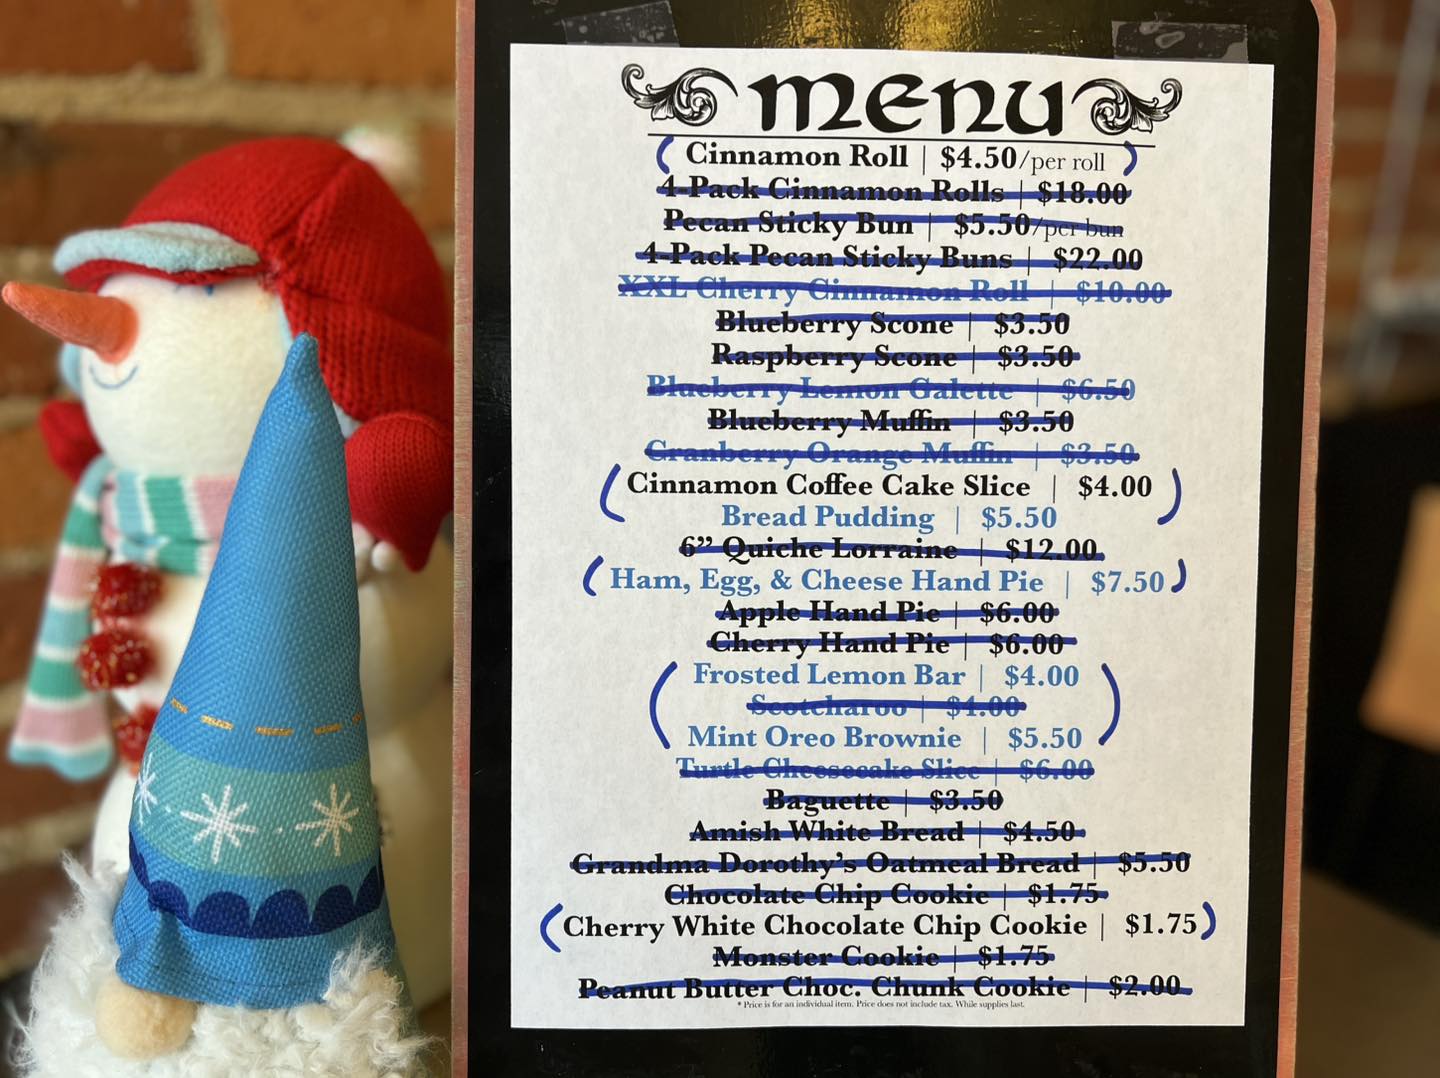 MENU
Cinnamon Roll | $4.50/per roll
4-Pack Cinnamon Rolls | $18.00
Pecan Sticky Bun | $5.50/per bun
4-Pack Pecan Sticky Buns | $22.00
XXL Cherry Cinnamon Roll | $10.00
Blueberry Scone | $3.50
Raspberry Scone | $3.50
Blueberry Lemon Galette | $6.50
Blueberry Muffin | $3.50
Cranberry Orange Muffin | $3.50
Cinnamon Coffee Cake Slice | $4.00
Bread Pudding | $5.50
6” Quiche Lorraine | $12.00
Ham, Egg, & Cheese Hand Pie | $7.50
Apple Hand Pie | $6.00
Cherry Hand Pie | $6.00
Frosted Lemon Bar | $4.00
Scotcharoo | $4.00
Mint Oreo Brownie | $5.50
Turtle Cheesecake Slice | $6.00
Baguette | $3.50
Amish White Bread | $4.50
Grandma Dorothy’s Oatmeal Bread | $5.50
Chocolate Chip Cookie | $1.75
Cherry White Chocolate Chip Cookie | $1.75
Monster Cookie | $1.75
Peanut Butter Choc. Chunk Cookie | $2.00
* Price is for an individual item. Price does not include tax. While supplies last.